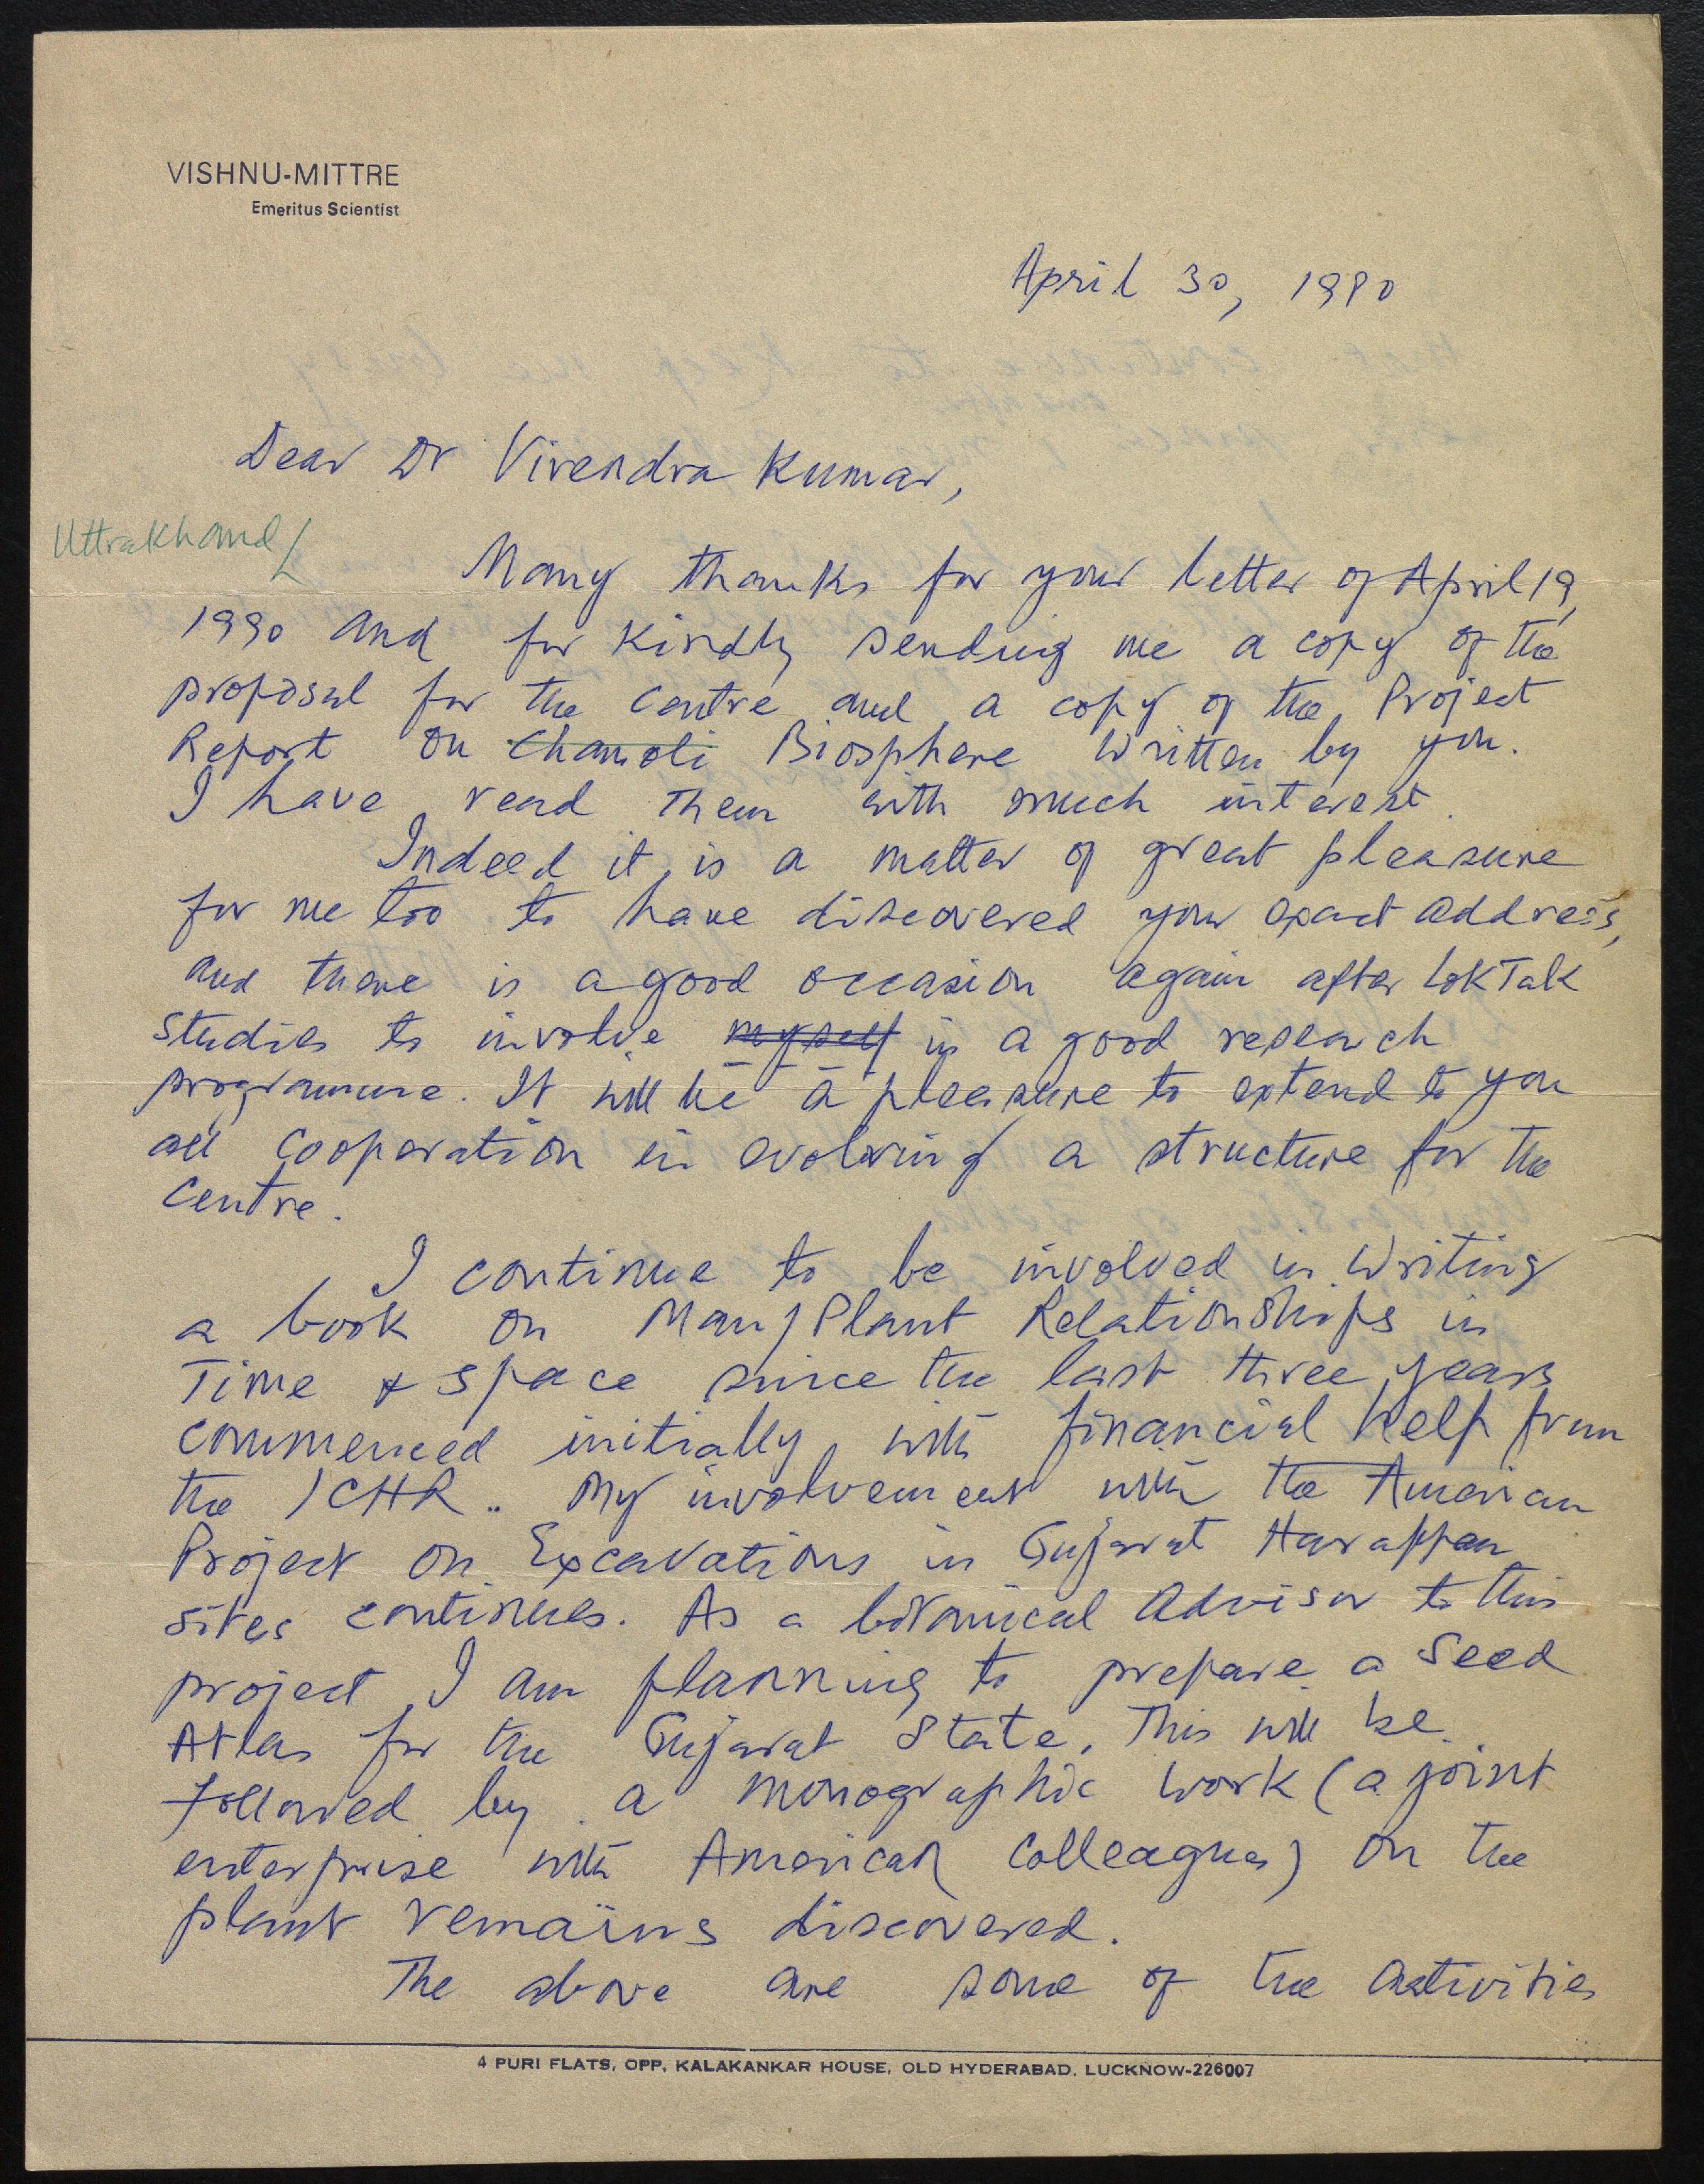 VISHNU-MITTRE
Emeritus Scientist
April 30, 1990
Dear Dr Virendra Kumar,
Uttrakhand
Many thanks for your letter of April 19,
1990 and for kindly sending me a copy of the
proposal for the Centre and a copy of the Project
Report on Chamoli Biosphere written by you.
I have read them with much interest.
Indeed it is a matter of great pleasure
for me too to have discovered your exact address,
and there is a good occasion again after LokTak
studies to involve myself in a good research
programme. It will be a pleasure to extend to you
all cooperation in evolving a structure for the
Centre.
I continue to be involved in writing
a book on Man/Plant Relationships in
Time & Space since the last three years
commenced initially with financial help from
the ICHR.. My involvement with the American
Project on Excavations in Gujarat Harappan
sites continues. As a botanical advisor to this
project I am planning to prepare a Seed
Atlas for the Gujarat State. This will be
followed by a monographic work (a joint
enterprise with American Colleagues) on the
plant remains discovered.
The above are some of the activities
4 PURI FLATS, OPP. KALAKANKAR HOUSE, OLD HYDERABAD, LUCKNOW-226007